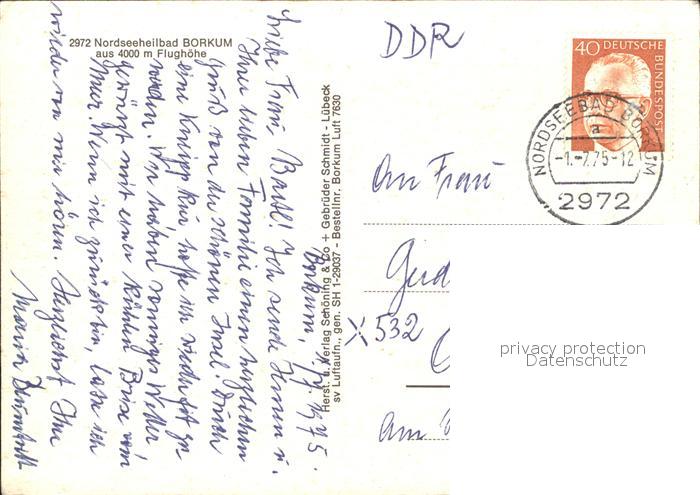 2972 Nordseeheilbad BORKUM
aus 4000 m Flughöhe
Borkum, 1.7.1975.
Liebe Frau! Ich sende Ihnen u.
Ihrer lieben Familie einen herzlichen
Gruß von der schönen Insel. Durch
eine Kneipp Kur, hoffe ich wieder fit zu
werden. Wir haben sonniges Wetter
gewürzt mit einer kühlen Brise vom
Meer. Wenn ich zurück bin, lasse ich
wieder von mir hören. Herzlichst Ihre
Maria
Herst. u. Verlag Schöning & Co + Gebrüder Schmidt - Lübeck
sv Luftaufn., gen. SH 1-29037 - Bestellnr. Borkum Luft 7630
DDR
40 DEUTSCHE
BUNDESPOST
NORDSEEBAD BORKUM
a
-1.-7.75-12
2972
An Frau
X 532
Am
privacy protection
Datenschutz